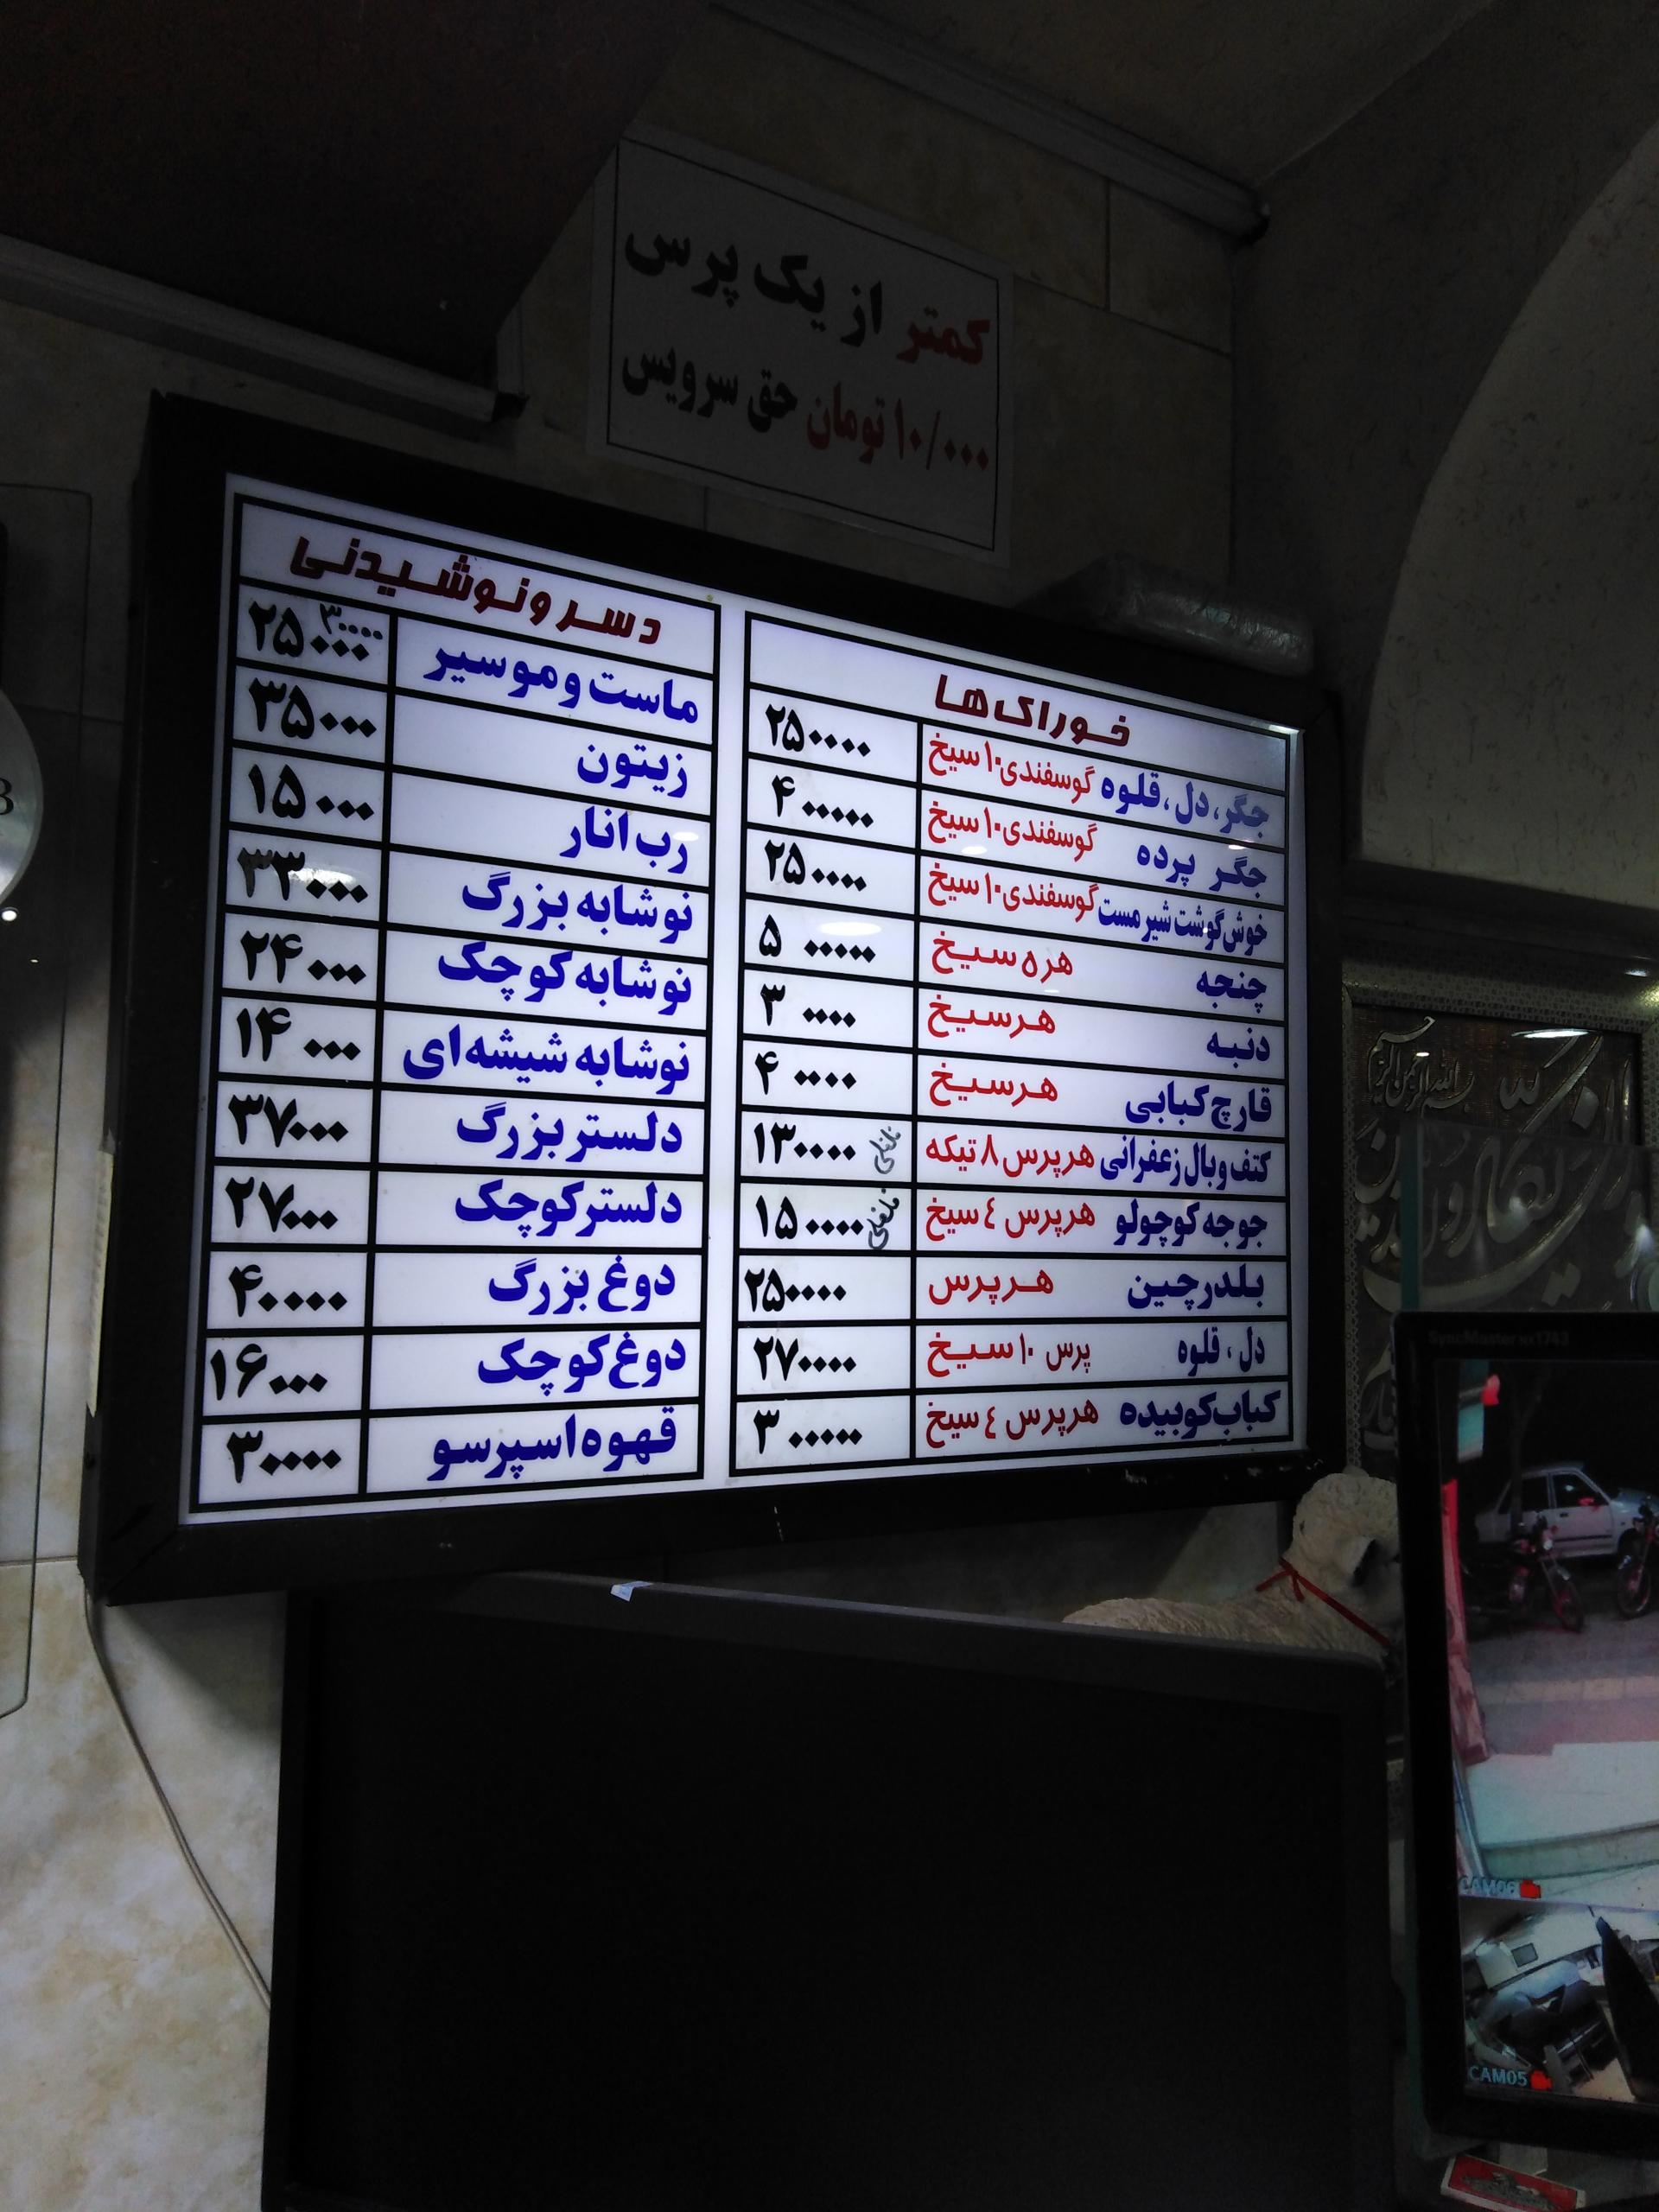 کمتر از یک پرس
۱۰/۰۰۰ تومان حق سرویس
خوراک‌ها
جگر، دل، قلوه گوسفندی ۱۰ سیخ ۲۵۰۰۰۰
جگر پرده گوسفندی ۱۰ سیخ ۴۰۰۰۰۰
خوش گوشت شیر مست گوسفندی ۱۰ سیخ ۲۵۰۰۰۰
چنجه هر ۵ سیخ ۵۰۰۰۰۰
دنبه هر سیخ ۳۰۰۰۰
قارچ کبابی هر سیخ ۴۰۰۰۰
کتف و بال زعفرانی هر پرس ۸ تیکه ۱۳۰۰۰۰
جوجه کوچولو هر پرس ٤ سیخ ۱۵۰۰۰۰
بلدرچین هر پرس ۲۵۰۰۰۰
دل، قلوه پرس ۱۰ سیخ ۲۷۰۰۰۰
کباب کوبیده هر پرس ٤ سیخ ۳۰۰۰۰۰
دسر و نوشیدنی
ماست و موسیر ۲۵۰۰۰ ۳۰۰۰۰
زیتون ۳۵۰۰۰
رب انار ۱۵۰۰۰
نوشابه بزرگ ۳۳۰۰۰
نوشابه کوچک ۲۴۰۰۰
نوشابه شیشه ای ۱۴۰۰۰
دلستر بزرگ ۳۷۰۰۰
دلستر کوچک ۲۷۰۰۰
دوغ بزرگ ۴۰۰۰۰
دوغ کوچک ۱۶۰۰۰
قهوه اسپرسو ۳۰۰۰۰
CAM06
CAM05